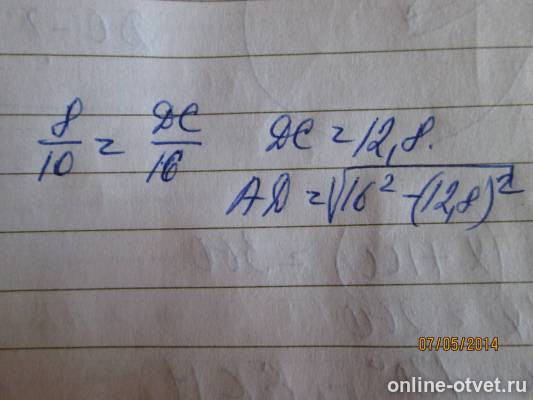 8/10 = DC/16 DC = 12,8.
AD = √16² - (12,8)²
07/05/2014
online-otvet.ru